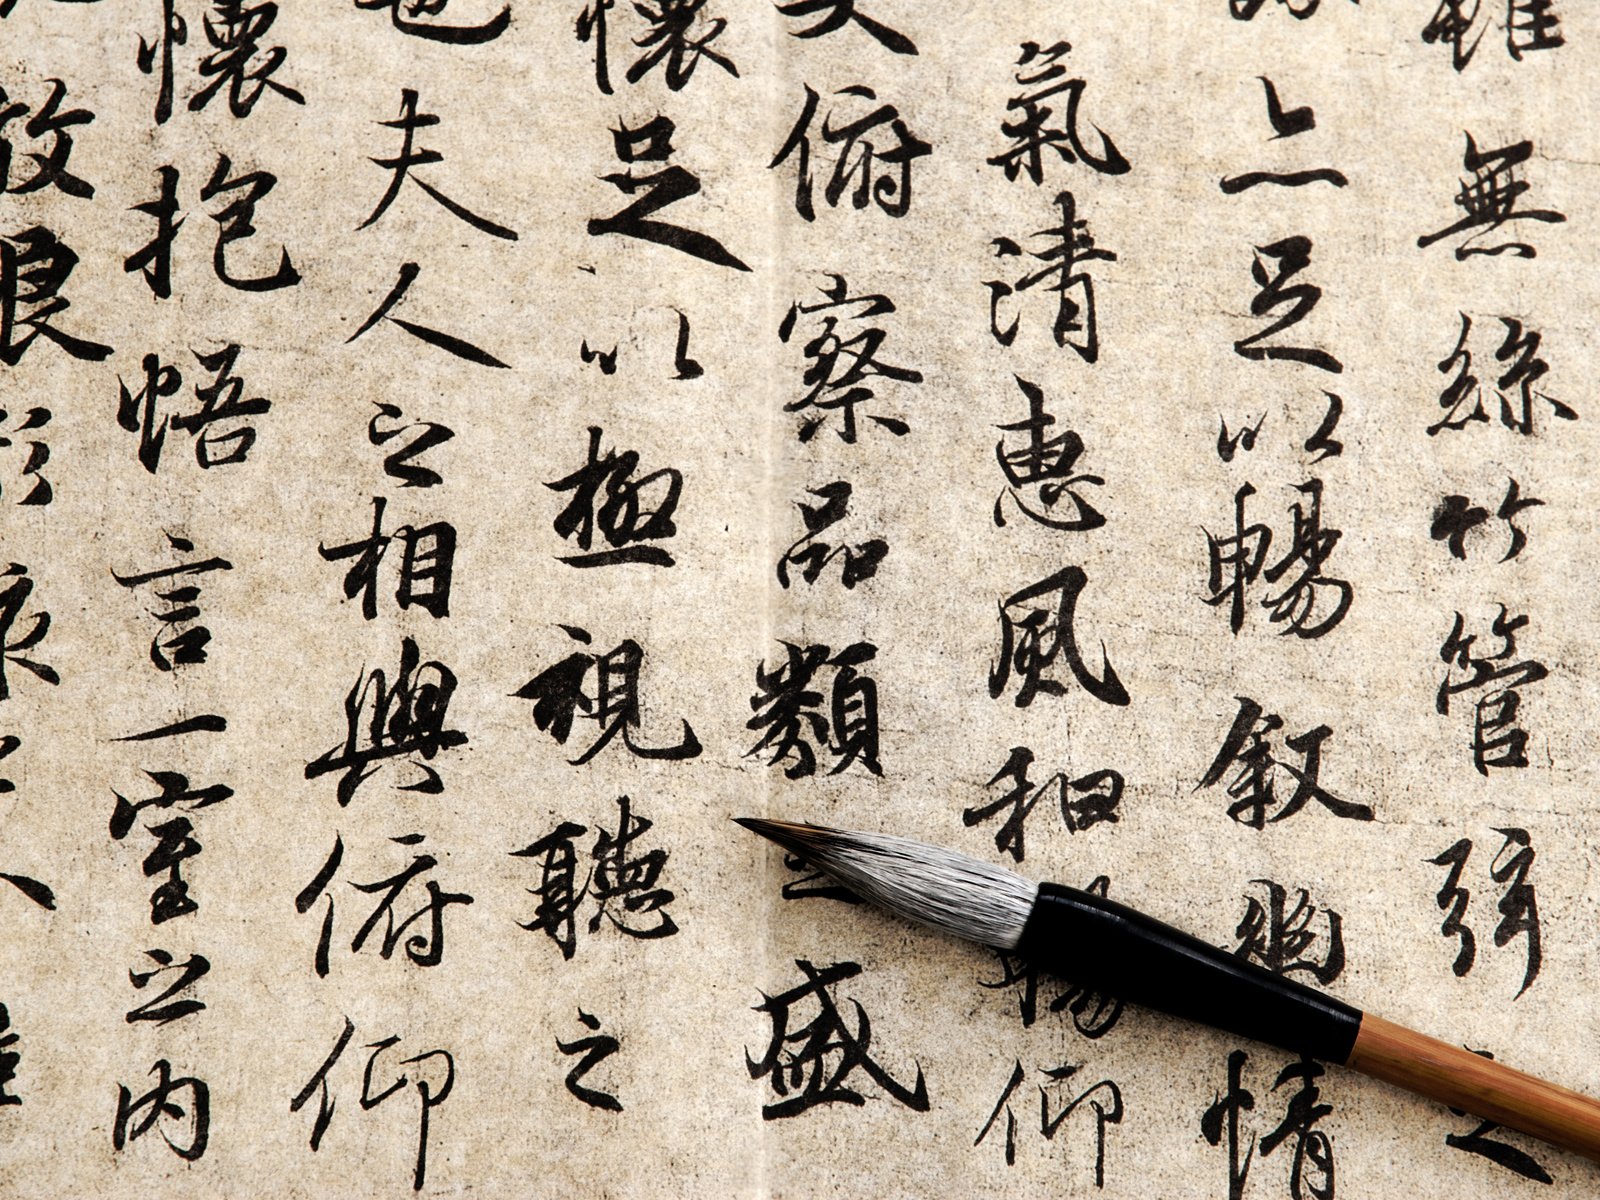 無絲竹管弦之
亦足以暢叙幽情
氣清惠風和暢仰
俯察品類之盛
懷足以極視聽之
夫人之相與俯仰
懷抱悟言一室之内
放浪形